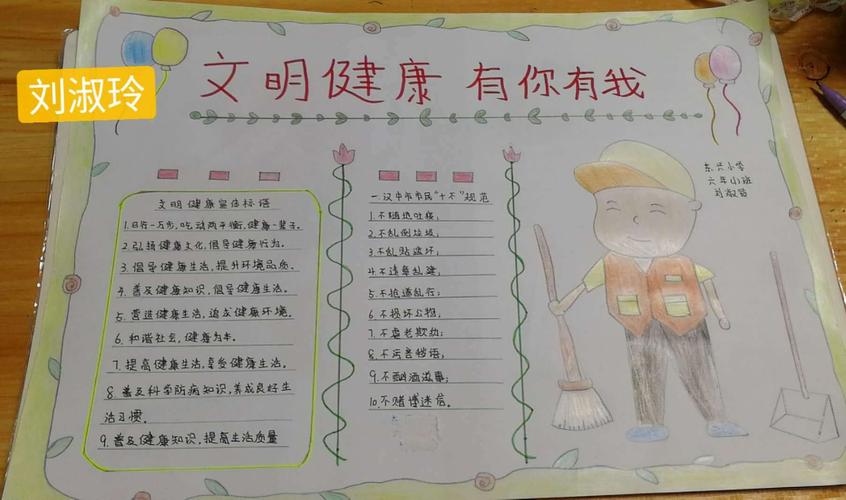 刘淑玲
文明健康 有你有我
东兴小学
六年(1)班
刘淑玲
文明健康宣传标语
1.日行一万步,吃动两平衡,健康一辈子。
2.弘扬健康文化,倡导健康行为。
3.倡导健康生活,提升环境品质。
4.普及健康知识,倡导健康生活。
5.营造健康生活,追求健康环境。
6.和谐社会,健康为本。
7.提高健康生活,享受健康生活。
8.普及科学防病知识,养成良好生
活习惯。
9.普及健康知识,提高生活质量
一.汉中市市民"十不"规范
1.不随地吐痰;
2.不乱倒垃圾;
3.不乱贴
4.不违章乱建;
5.不抢道乱行;
6.不损坏公物;
7.不虐老欺幼;
8.不污言秽语;
9.不酗酒滋事;
10.不赌博迷信。